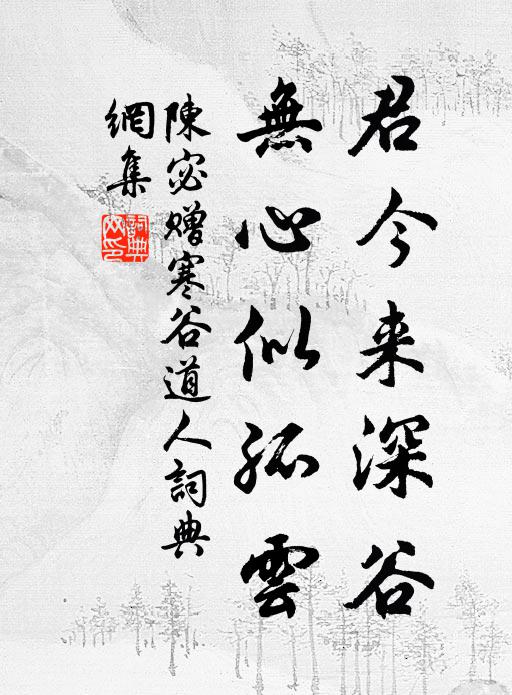 君今来深谷
無心似孤雲
陳宓赠寒谷道人詞典
網集
詞典
网印